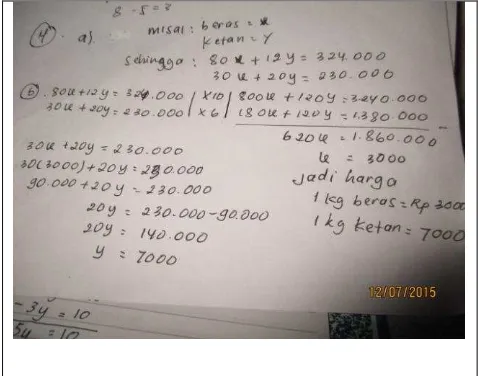 8 - 5 = 8
4. a). misal : beras = x
ketan = y
sehingga : 80x + 12y = 324.000
30x + 20y = 230.000
b. 80x + 12y = 324.000 | x10 | 800x + 120y = 3.240.000
30x + 20y = 230.000 | x6 | 180x + 120y = 1.380.000
620x = 1.860.000
x = 3000
30x + 20y = 230.000
30(3000) + 20y = 230.000
90.000 + 20y = 230.000
20y = 230.000 - 90.000
20y = 140.000
y = 7000
Jadi harga
1 kg beras = Rp 3000
1 kg ketan = 7000
12/07/2015
- 3y = 10
5y = 10